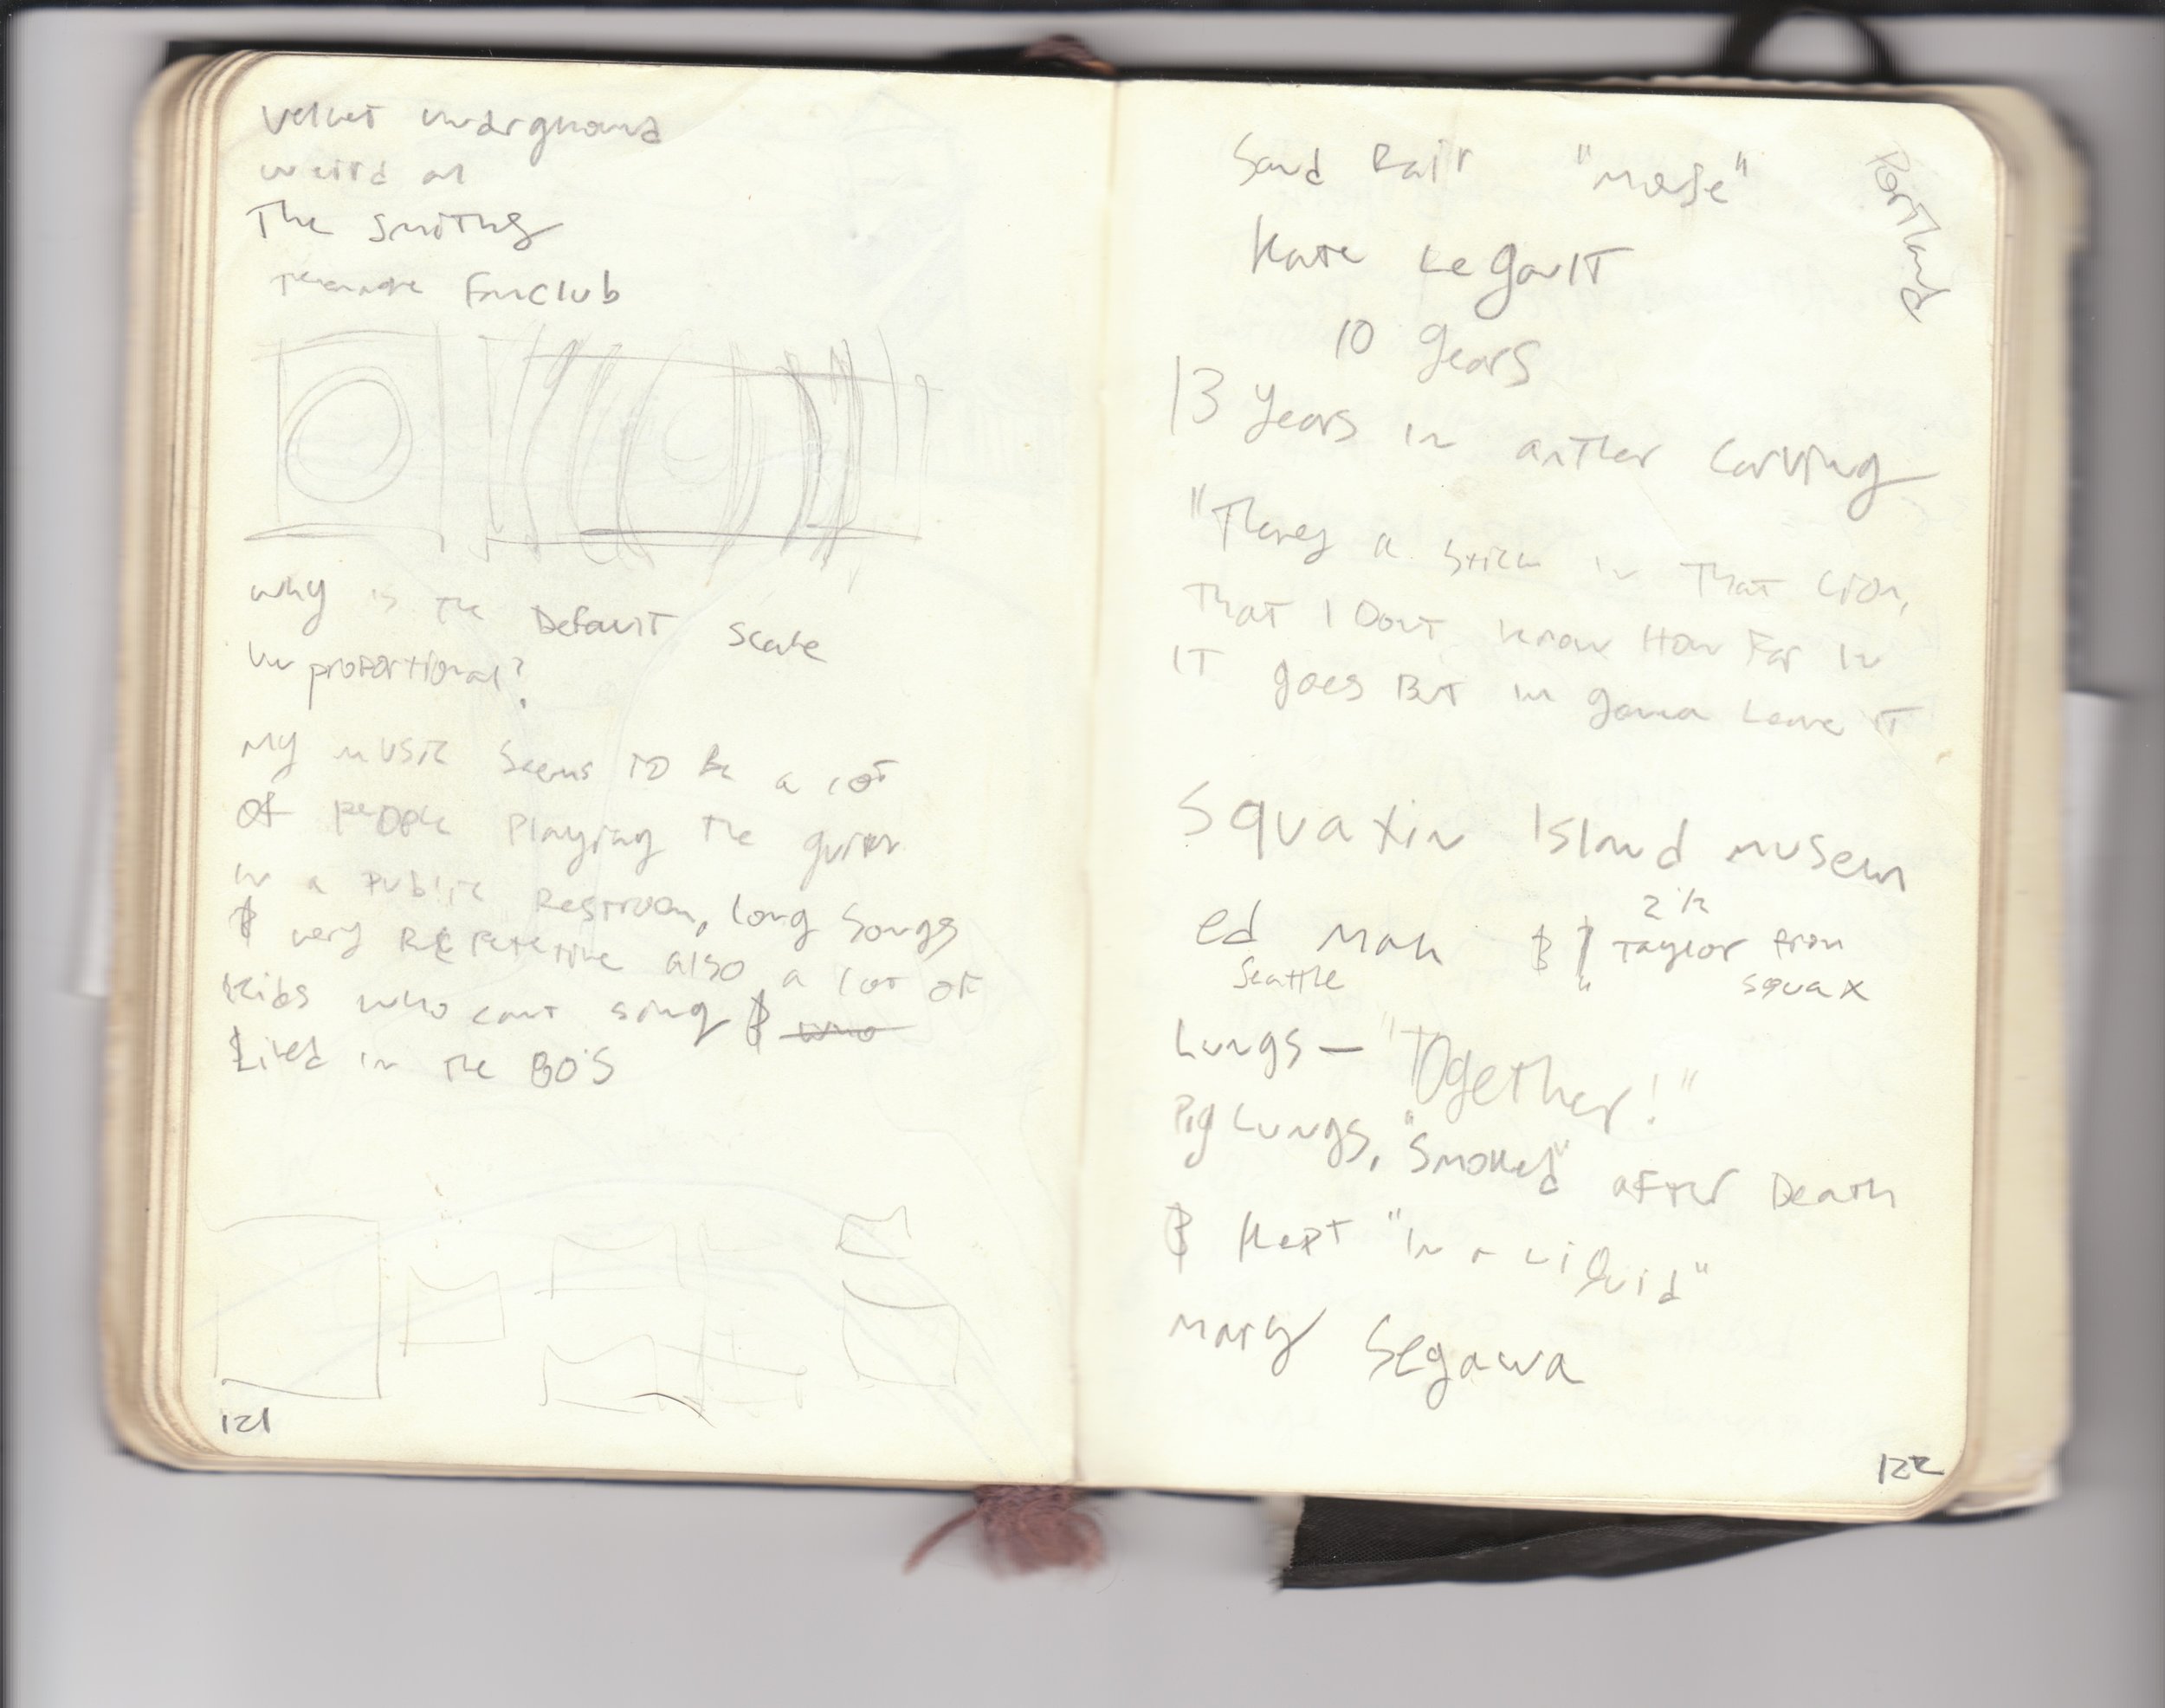 Velvet Underground
Weird al
The Smiths
Teenage Fanclub
why is the Default Scale
unproportional?
My music Seems to Be a lot
of people Playing the guitar
in a Public Restroom, Long Songs
& very Repetetive also a lot of
Kids who cant sing & who
Lived in the 80's
121
Portland
Sand Rail "Mose"
Kate LeGault
10 years
13 years in antler carving
"Theres a stick in That Lion,
That I Dont know How Far in
IT goes But im gonna Leave IT
Squaxin Island museum
ed Mah & Taylor from
Seattle squax
Lungs — "Together!"
Pig Lungs, "Smoked" after Death
& Kept "in a Liquid"
Mary Segawa
122